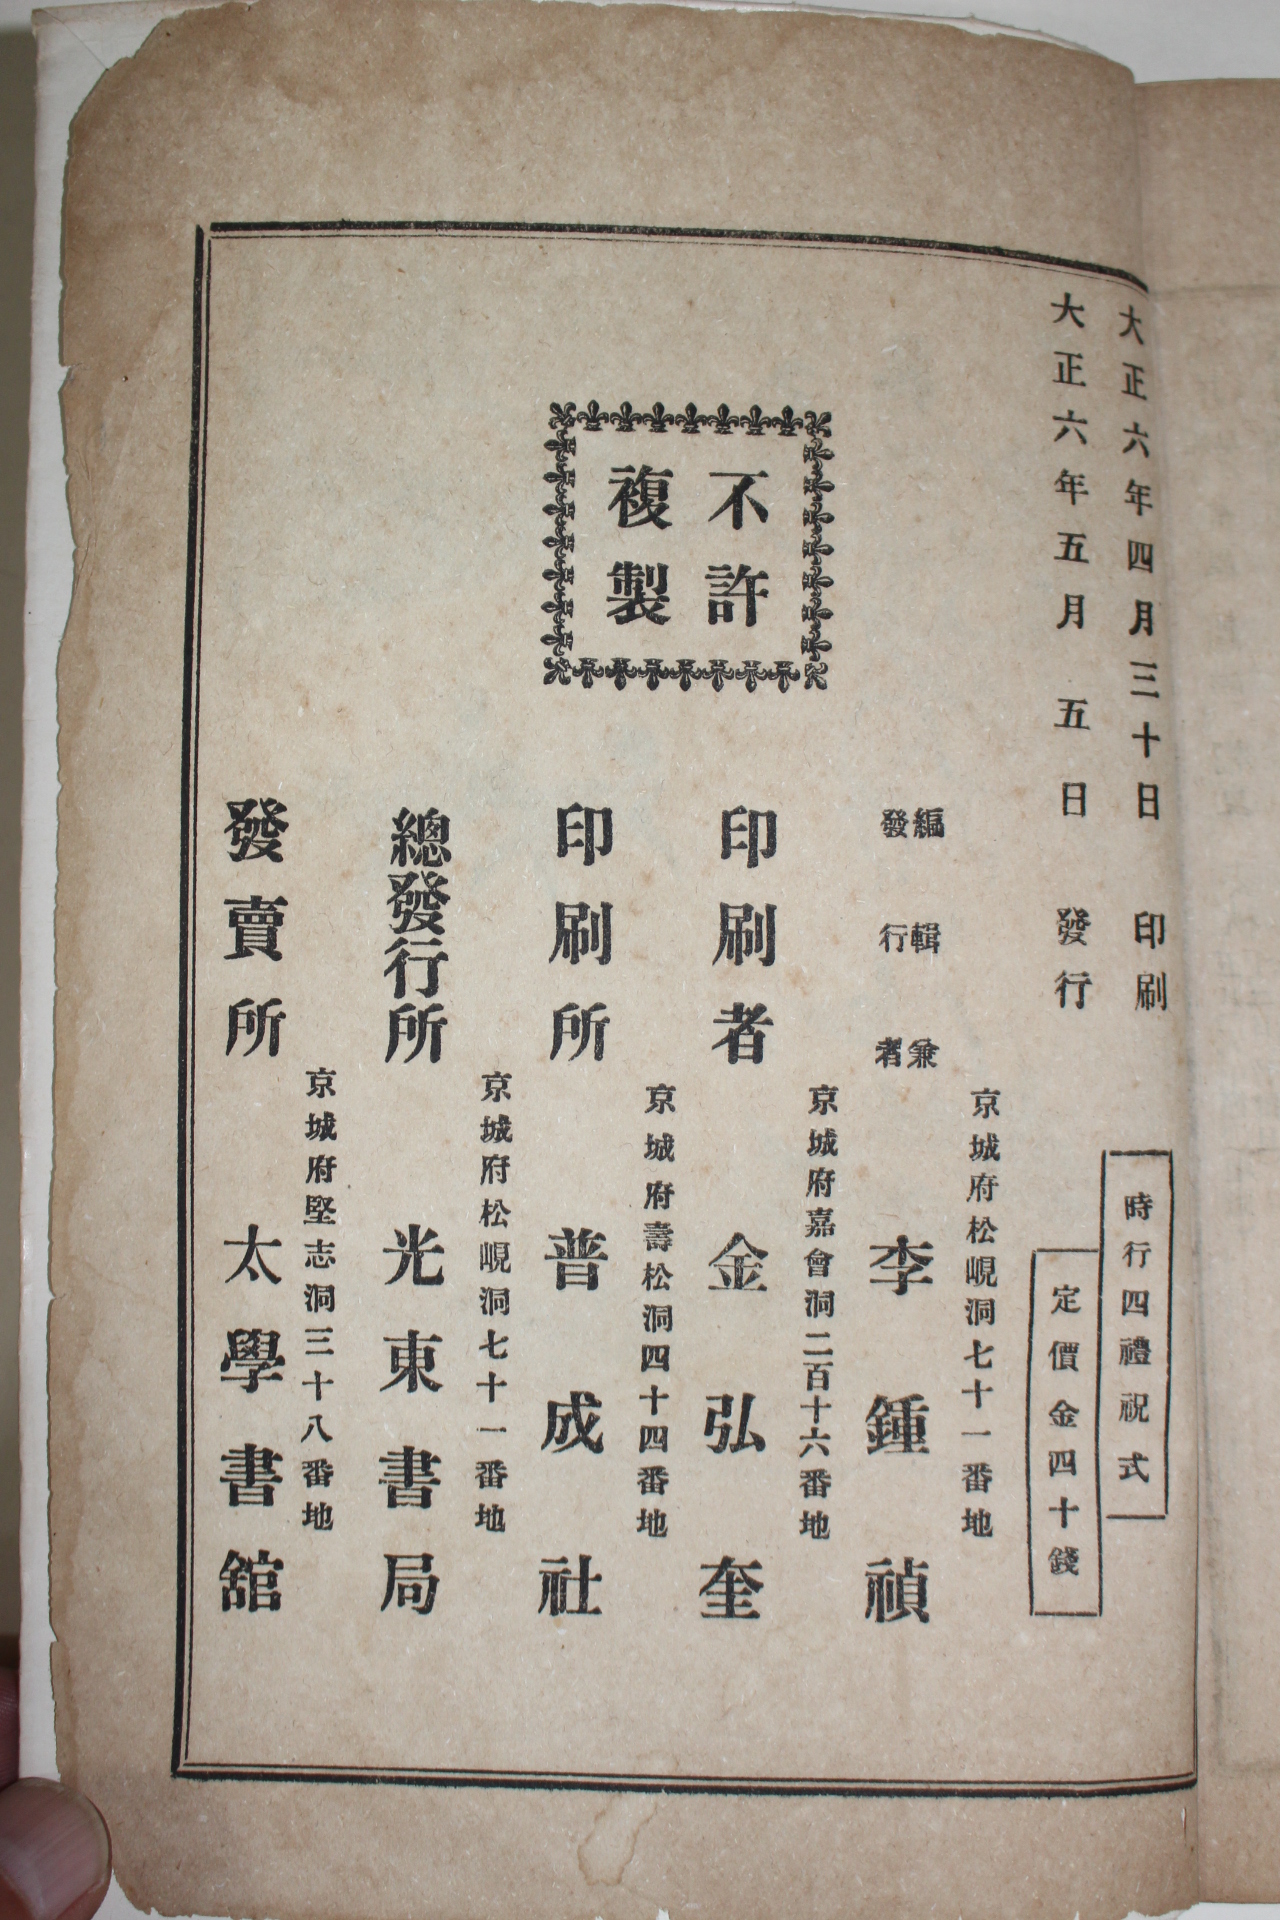 大正六年四月三十日 印刷
大正六年五月五日 發行
時行四禮祝式
定價金四十錢
不許
複製
京城府松峴洞七十一番地
編輯兼
發行者
李鍾禎
京城府嘉會洞二百十六番地
印刷者 金弘奎
京城府壽松洞四十四番地
印刷所 普成社
京城府松峴洞七十一番地
總發行所 光東書局
京城府堅志洞三十八番地
發賣所 太學書舘